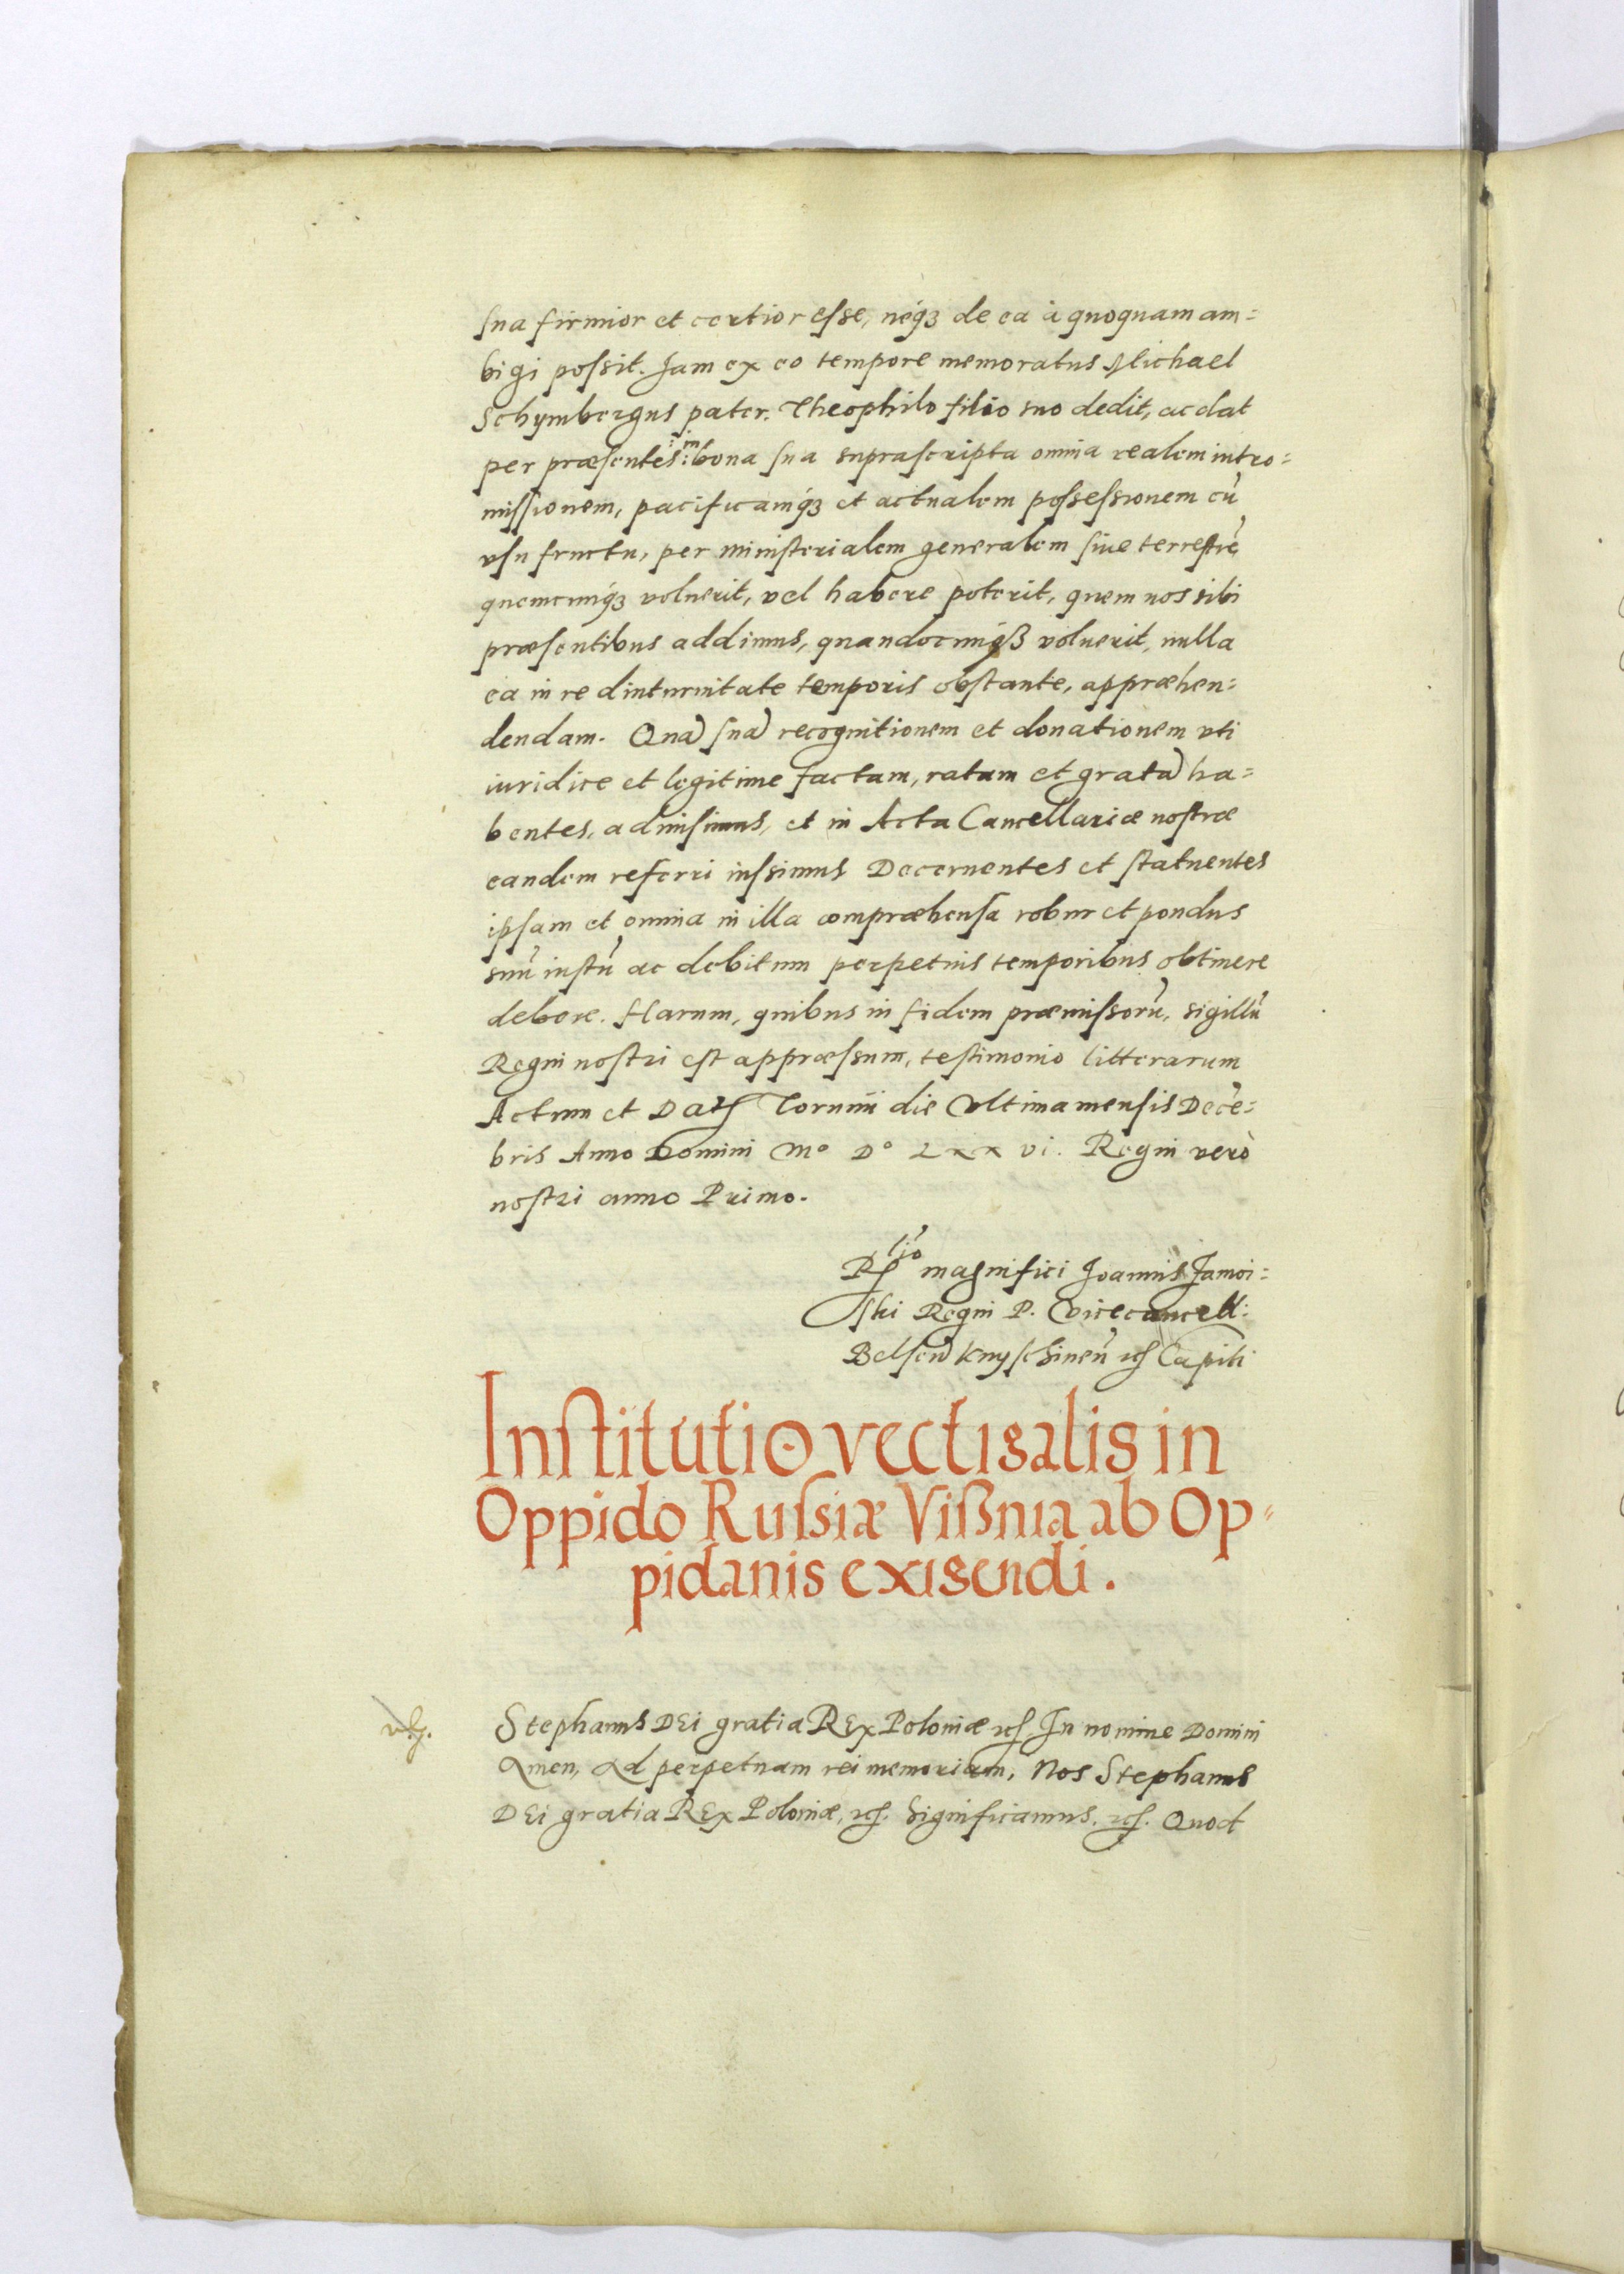 sua firmior et certior esse, neq3 de ea à quoquam am=
bigi possit. Jam ex eo tempore memoratus Michael
Schymbergus pater. Theophilo filio suo dedit, ac dat
per præsentes :in: bona sua suprascripta omnia realem intro=
missionem, pacificamq3 et actualem possessionem cũ
vsu fructu, per ministerialem generalem siue terrestrẽ,
quemcunq3 voluerit, vel habere poterit, quem nos sibi
præsentibus addimus, quandocunqß voluerit, nulla
ea in re diuturnitate temporis obstante, appræhen=
dendam. Quã suã recognitionem et donationem vti
iuridice et legitime factam, ratam et gratã ha=
bentes, admisimus, et in Acta Cancellariæ nostræ
eandem referri iussimus Decernentes et statuentes
ipsam et omnia in illa compræhensa robur et pondus
suũ iustũ ac debitum perpetuis temporibus obtinere
debere. Harum, quibus in fidem præmissorũ, sigillũ
Regni nostri est appræssum, testimonio litterarum
Actum et Datʒ Torunii die Vltima mensis Decẽ=
bris Anno Domini Mº Dº LXXVI. Regni verò
nostri anno Primo.
Rlió magnifici Joannis Zamoi=
ski Regni P. Vicecancell:
Belseñ Knyschineñ ʒ Capiti
Institutio vectigalis in
Oppido Russiæ Vißnia ab Op=
pidanis exigendi.
Stephanus DEi gratia REx Poloniæ ʒ In nomine Domini
Amen, Ad perpetuam rei memoriam, Nos Stephanus
DEi gratia REx Poloniæ, ʒ. Significamus, ʒ. Quod